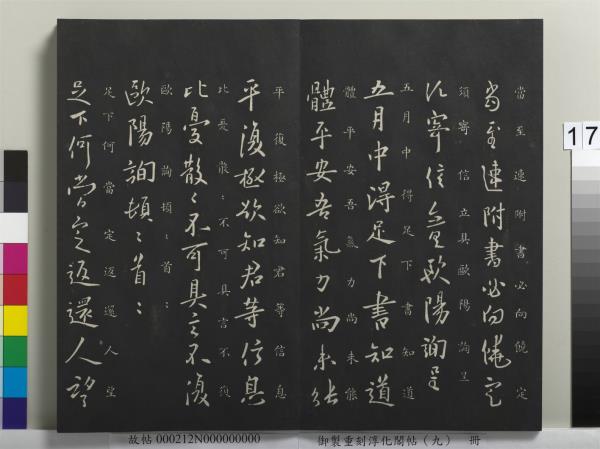 當至速附書必向饒定
當至速附書必向饒定
須寄信立具歐陽詢呈
須寄信立具歐陽詢呈
五月中得足下書知道
五月中得足下書知道
體平安吾氣力尚未能
體平安吾氣力尚未能
平復極欲知君等信息
平復極欲知君等信息
比憂散〻不可具言不復
比憂散〻不可具言不復
歐陽詢頓〻首〻
歐陽詢頓〻首〻
足下何當定返還人望
足下何當定返還人望
17
故帖000212N000000000
御製重刻淳化閣帖（九） 冊